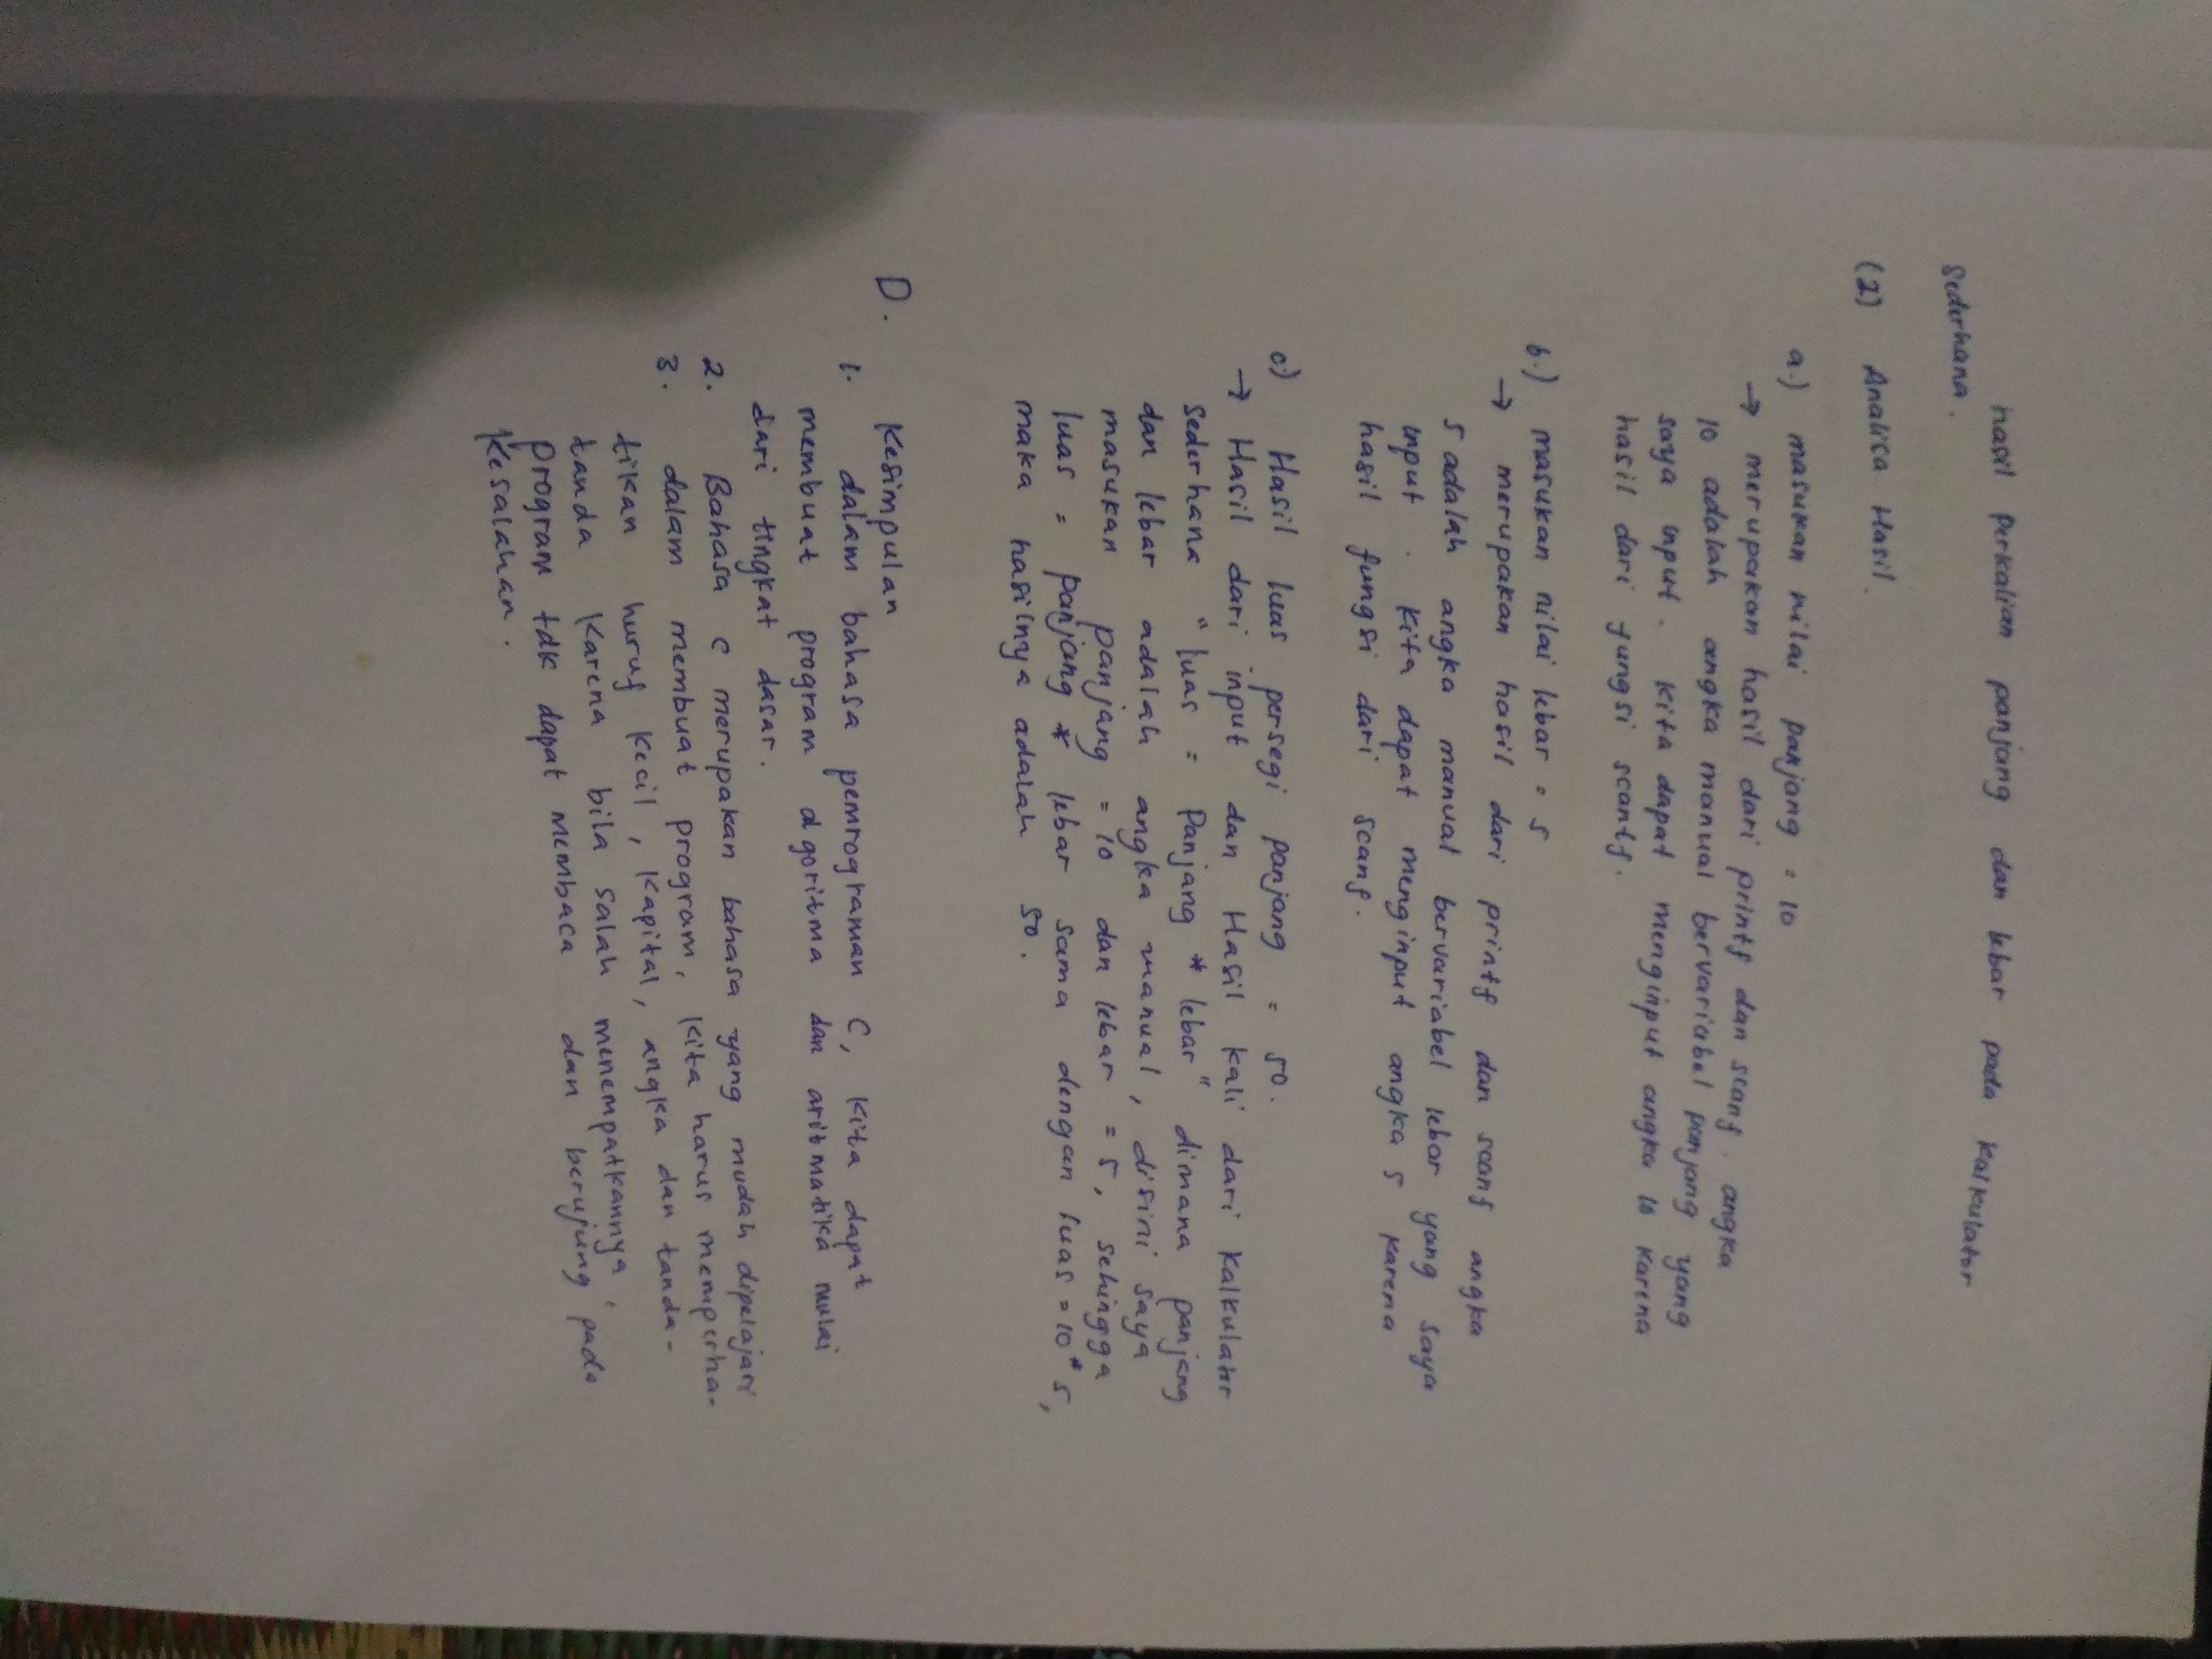 hasil perkalian panjang dan lebar pada kalkulator
sederhana.
(2) Analisa Hasil.
a.) masukan nilai panjang = 10
→ merupakan hasil dari printf dan scanf. angka
10 adalah angka manual bervariabel panjang yang
saya input. kita dapat menginput angka 10 karena
hasil dari fungsi scanf.
b.) masukan nilai lebar = 5
→ merupakan hasil dari printf dan scanf angka
5 adalah angka manual bervariabel lebar yang saya
input. kita dapat menginput angka 5 karena
hasil fungsi dari scanf.
c) Hasil luas persegi panjang = 50.
→ Hasil dari input dan Hasil kali dari kalkulator
sederhana "luas = Panjang * lebar" dimana panjang
dan lebar adalah angka manual, disini saya
masukan panjang = 10 dan lebar = 5, sehingga
luas = panjang * lebar sama dengan luas = 10 * 5,
maka hasilnya adalah 50.
D. Kesimpulan
1. dalam bahasa pemrograman C, kita dapat
membuat program algoritma dan aritmatika mulai
dari tingkat dasar.
2. Bahasa c merupakan bahasa yang mudah dipelajari
3. dalam membuat program, kita harus memperha-
tikan huruf kecil, kapital, angka dan tanda-
tanda karena bila salah menempatkannya,
program tdk dapat membaca dan berujung pada
kesalahan.